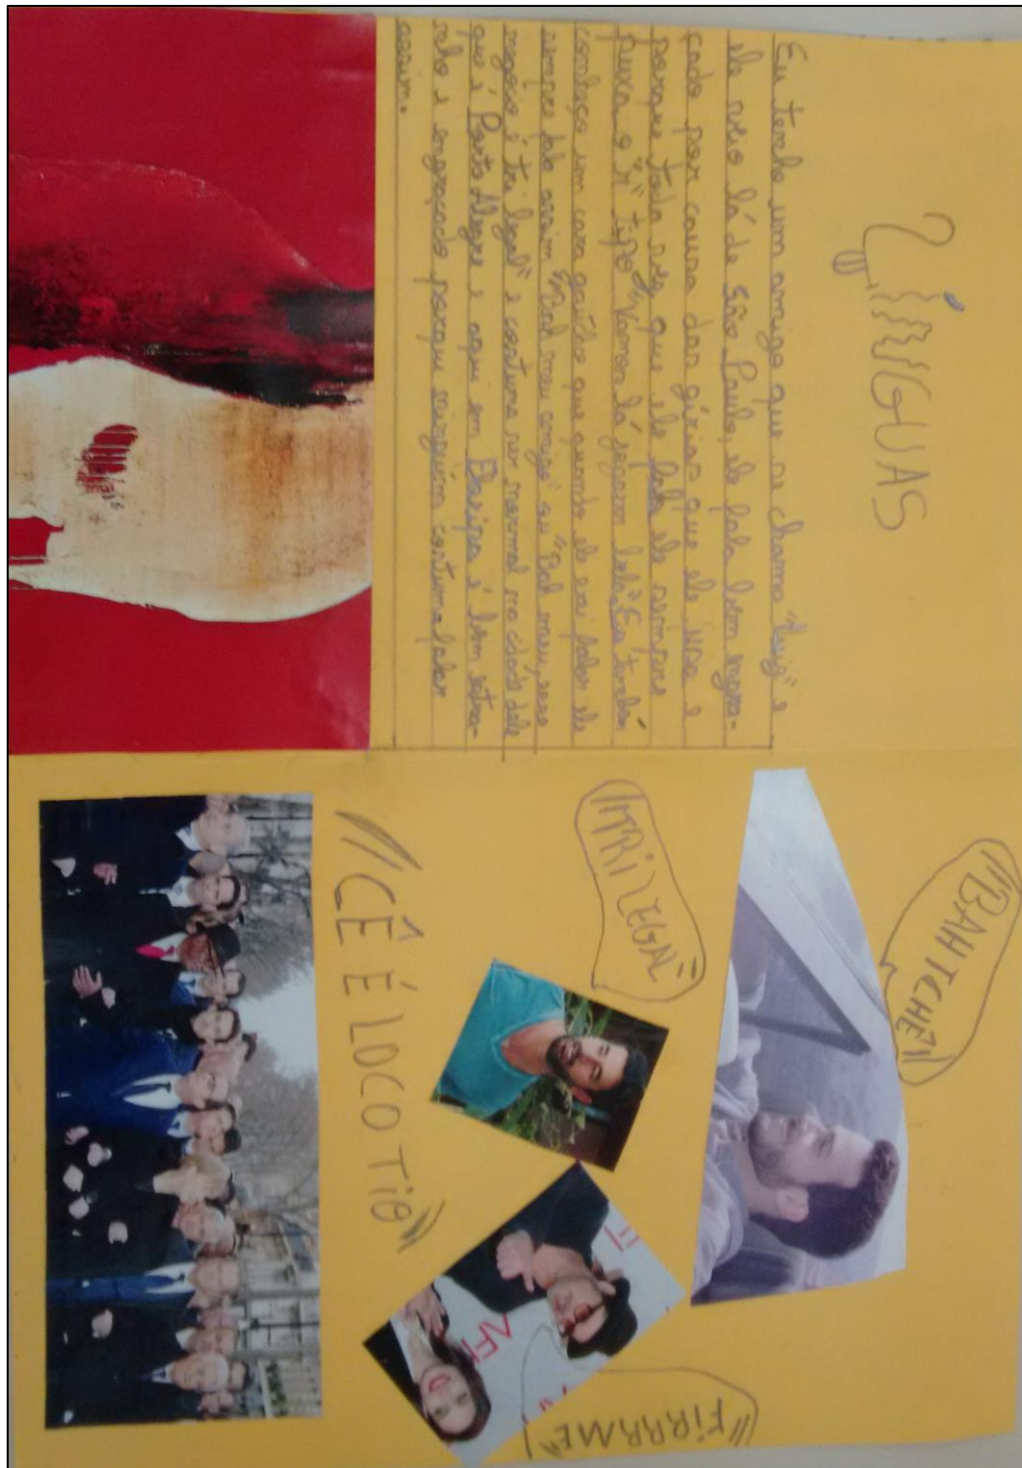 LÍNGUAS
Eu tenho um amigo que se chama "Luiz" e
ele veio lá de São Paulo, ele fala bem engra-
çado por causa das gírias que ele usa e
porque toda vez que ele fala ele sempre
puxa o "r" tipo "Vamos lá jogarrr bola". Eu também
conheço um cara gaúcho que quando ele vai falar ele
sempre fala assim "Bah meu amigo" ou "Bah meu, esse
negócio é tri legal" e costuma ser normal na cidade dele
que é Porto Alegre e aqui em Floripa é bem estra-
nho e engraçado porque ninguém costuma falar
assim.
"BAH TCHE"
"TRi LEGAL"
"FiRRRME"
"CÊ É LOCO TiO"
AFI